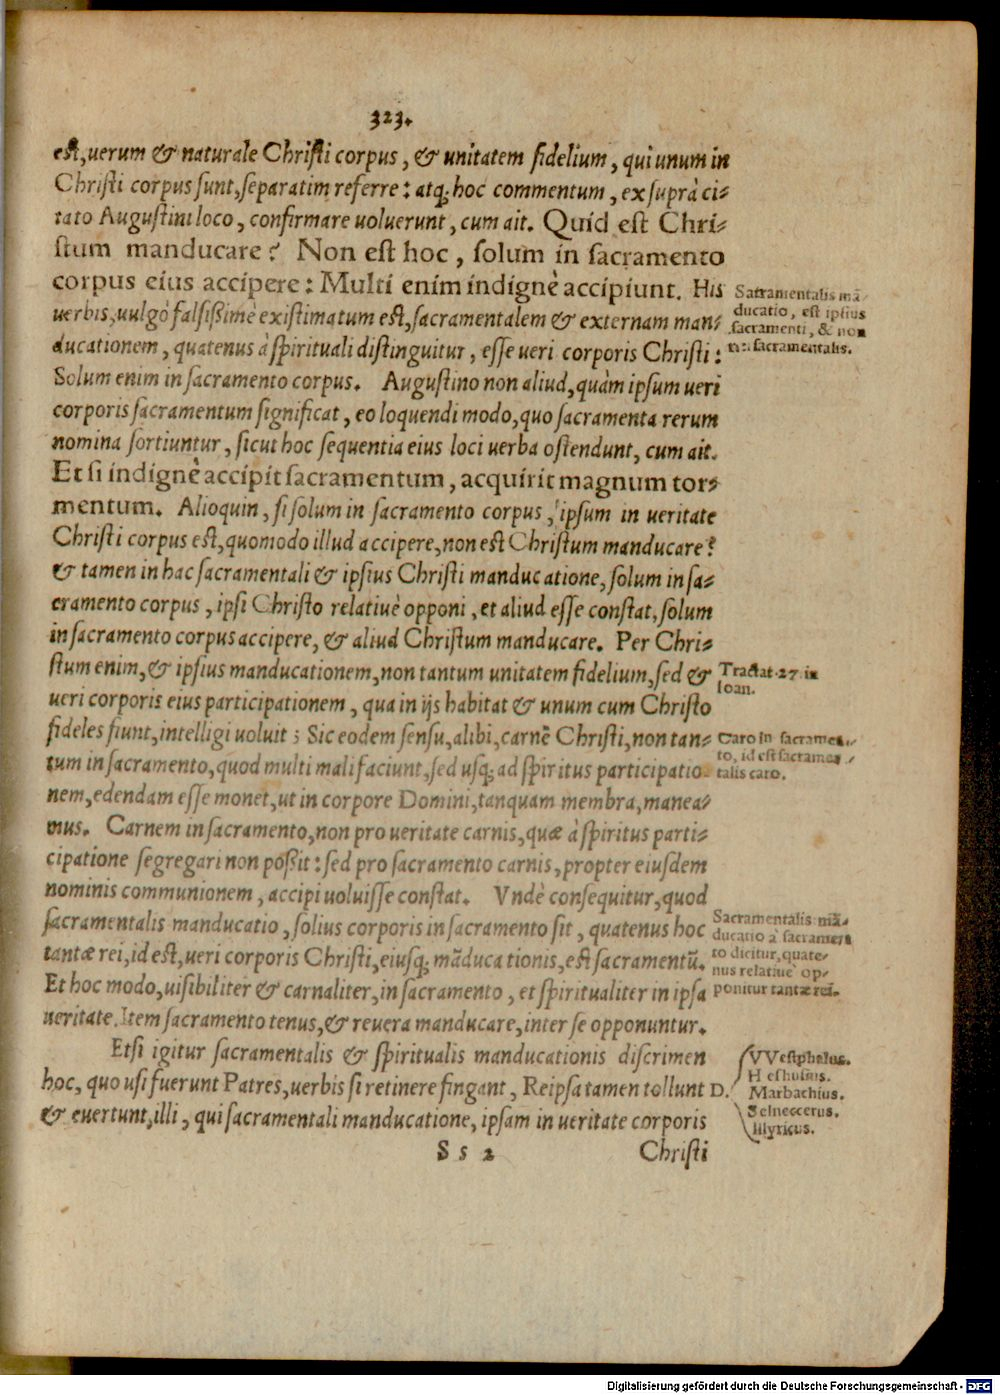 323.
est, uerum & naturale Christi corpus, & unitatem fidelium, qui unum in
Christi corpus sunt, separatim referre: atq; hoc commentum, ex suprà ci-
tato Augustini loco, confirmare uoluerunt, cum ait. Quid est Chri-
stum manducare? Non est hoc, solum in sacramento
corpus eius accipere: Multi enim indignè accipiunt. His
uerbis, uulgò falsißimè existimatum est, sacramentalem & externam man-
ducationem, quatenus à spirituali distinguitur, esse ueri corporis Christi:
Solum enim in sacramento corpus. Augustino non aliud, quàm ipsum ueri
corporis sacramentum significat, eo loquendi modo, quo sacramenta rerum
nomina sortiuntur, sicut hoc sequentia eius loci uerba ostendunt, cum ait.
Et si indignè accipit sacramentum, acquirit magnum tor-
mentum. Alioquin, si solum in sacramento corpus, ipsum in ueritate
Christi corpus est, quomodo illud accipere, non est Christum manducare?
& tamen in hac sacramentali & ipsius Christi manducatione, solum in sa-
cramento corpus, ipsi Christo relatiuè opponi, et aliud esse constat, solum
in sacramento corpus accipere, & aliud Christum manducare. Per Chri-
stum enim, & ipsius manducationem, non tantum unitatem fidelium, sed &
ueri corporis eius participationem, qua in ijs habitat & unum cum Christo
fideles fiunt, intelligi uoluit; Sic eodem sensu, alibi, carnē Christi, non tan-
tum in sacramento, quod multi mali faciunt, sed usq; ad spiritus participatio-
nem, edendam esse monet, ut in corpore Domini, tanquam membra, manea-
mus. Carnem in sacramento, non pro ueritate carnis, quæ à spiritus parti-
cipatione segregari non poßit: sed pro sacramento carnis, propter eiusdem
nominis communionem, accipi uoluisse constat. Vndè consequitur, quod
sacramentalis manducatio, solius corporis in sacramento sit, quatenus hoc
tantæ rei, id est, ueri corporis Christi, eiusq; māducationis, est sacramentū.
Et hoc modo, uisibiliter & carnaliter, in sacramento, et spiritualiter in ipsa
ueritate. Item sacramento tenus, & reuera manducare, inter se opponuntur.
Etsi igitur sacramentalis & spiritualis manducationis discrimen
hoc, quo usi fuerunt Patres, uerbis si retinere fingant, Reipsa tamen tollunt
& euertunt, illi, qui sacramentali manducatione, ipsam in ueritate corporis
S s 2 Christi
Sacramentalis mā-
ducatio, est ipsius
sacramenti, & non
rei sacramentalis.
Tractat. 27. in
Ioan.
Caro in sacramen-
to, id est sacramen-
talis caro.
Sacramentalis mā-
ducatio à sacramen-
to dicitur, quate-
nus relatiuè op-
ponitur tantæ rei.
D.
VVestphalus.
Heshusius.
Marbachius.
Selneccerus.
Illyricus.
Digitalisierung gefördert durch die Deutsche Forschungsgemeinschaft - DFG